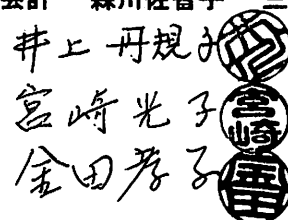 会計 森川佐智子
井上丹規子
宮崎光子 宮崎
金田孝子 金田